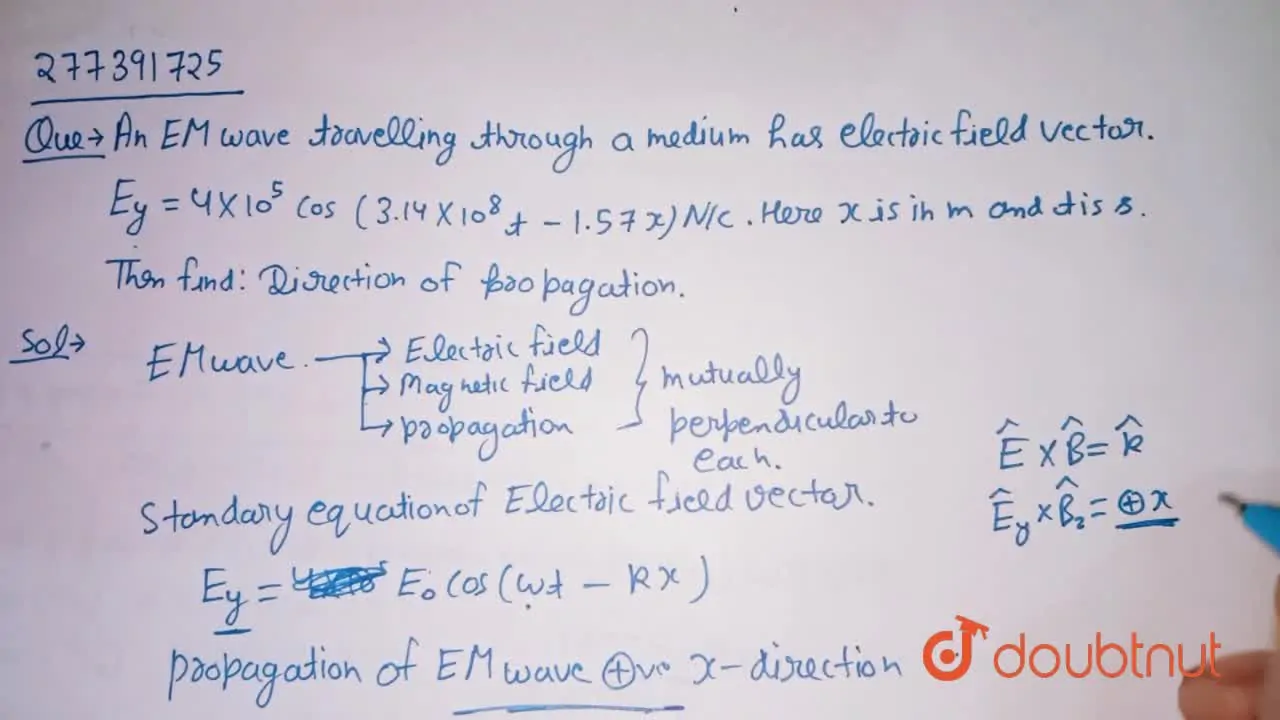 277391725
Que→ An EM wave travelling through a medium has electric field vector.
Ey = 4×10⁵ cos (3.14×10⁸ t – 1.57x) N/C. Here x is in m and t is s.
Then find: Direction of propagation.
Sol→ EM wave. → Electric field
→ Magnetic field } mutually
→ propagation perpendicular to
each.
Ê × B̂ = k̂
Êy × B̂z = ⊕ x
Standary equation of Electric field vector.
Ey = E₀ cos (ωt – kx)
propagation of EM wave ⊕ve x-direction
doubtnut